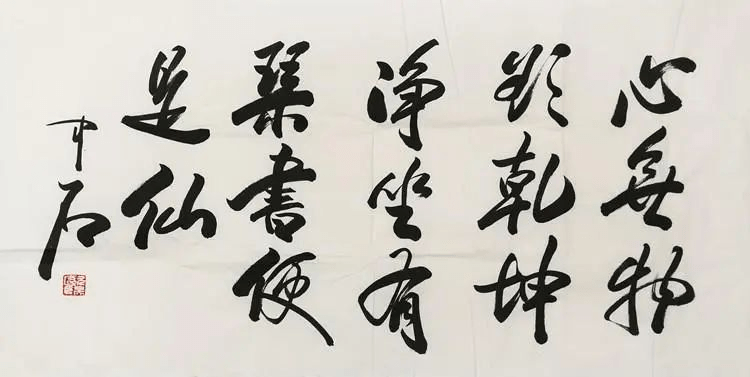 心無物
欲乾坤
净坐有
琹書便
是仙
中石